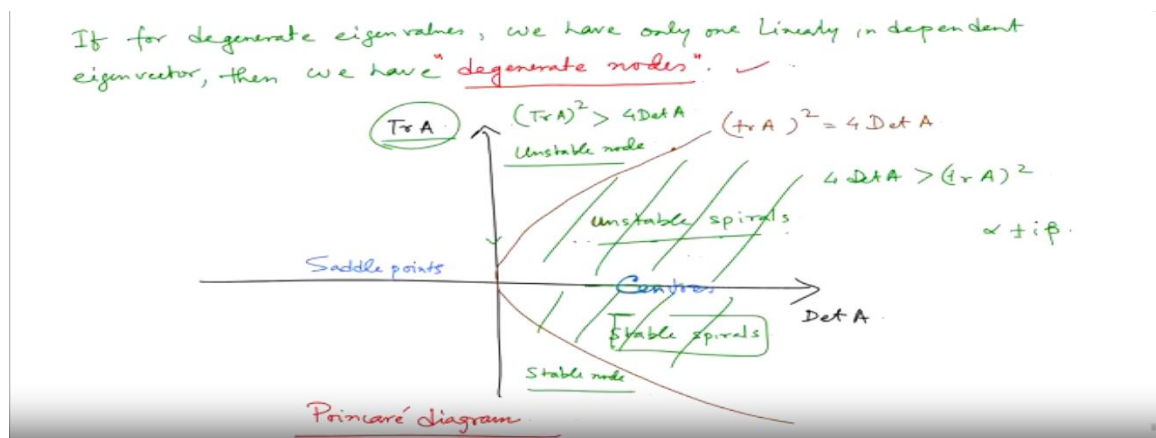 If for degenerate eigenvalues, we have only one linearly independent
eigenvector, then we have "degenerate nodes".
Tr A
(Tr A)² > 4 Det A
(tr A)² = 4 Det A
Unstable node
4 Det A > (tr A)²
unstable spirals
α ± iβ.
Saddle points
Centres
Det A
Stable spirals
Stable node
Poincaré diagram